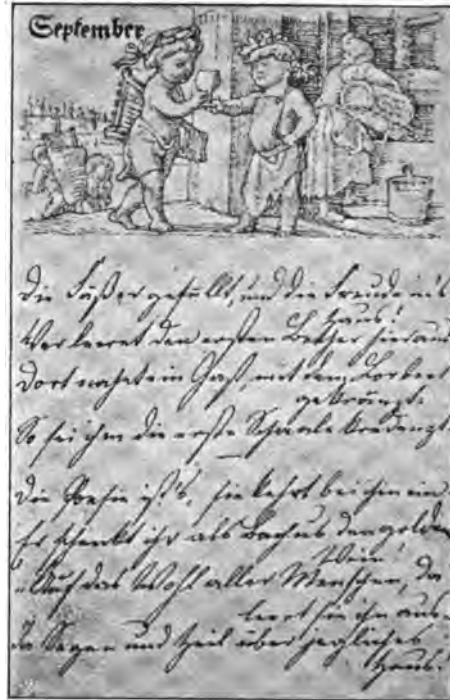 September
Die Fässer gefüllt, und die Freude in's
Haus!
Wer leeret den ersten Becher hieraus
Dort nahet ein Gast, mit dem Lorbeer
gekränzt.
So sei ihm die erste Schaale kredenzt.
Die Poesie ist's, sie kehrt bei ihm ein
Er schenkt ihr als Bachus den golden
Wein!
"Auf das Wohl aller Menschen, da
leeret sie ihn aus.
Segen und Heil über jegliches
Haus!